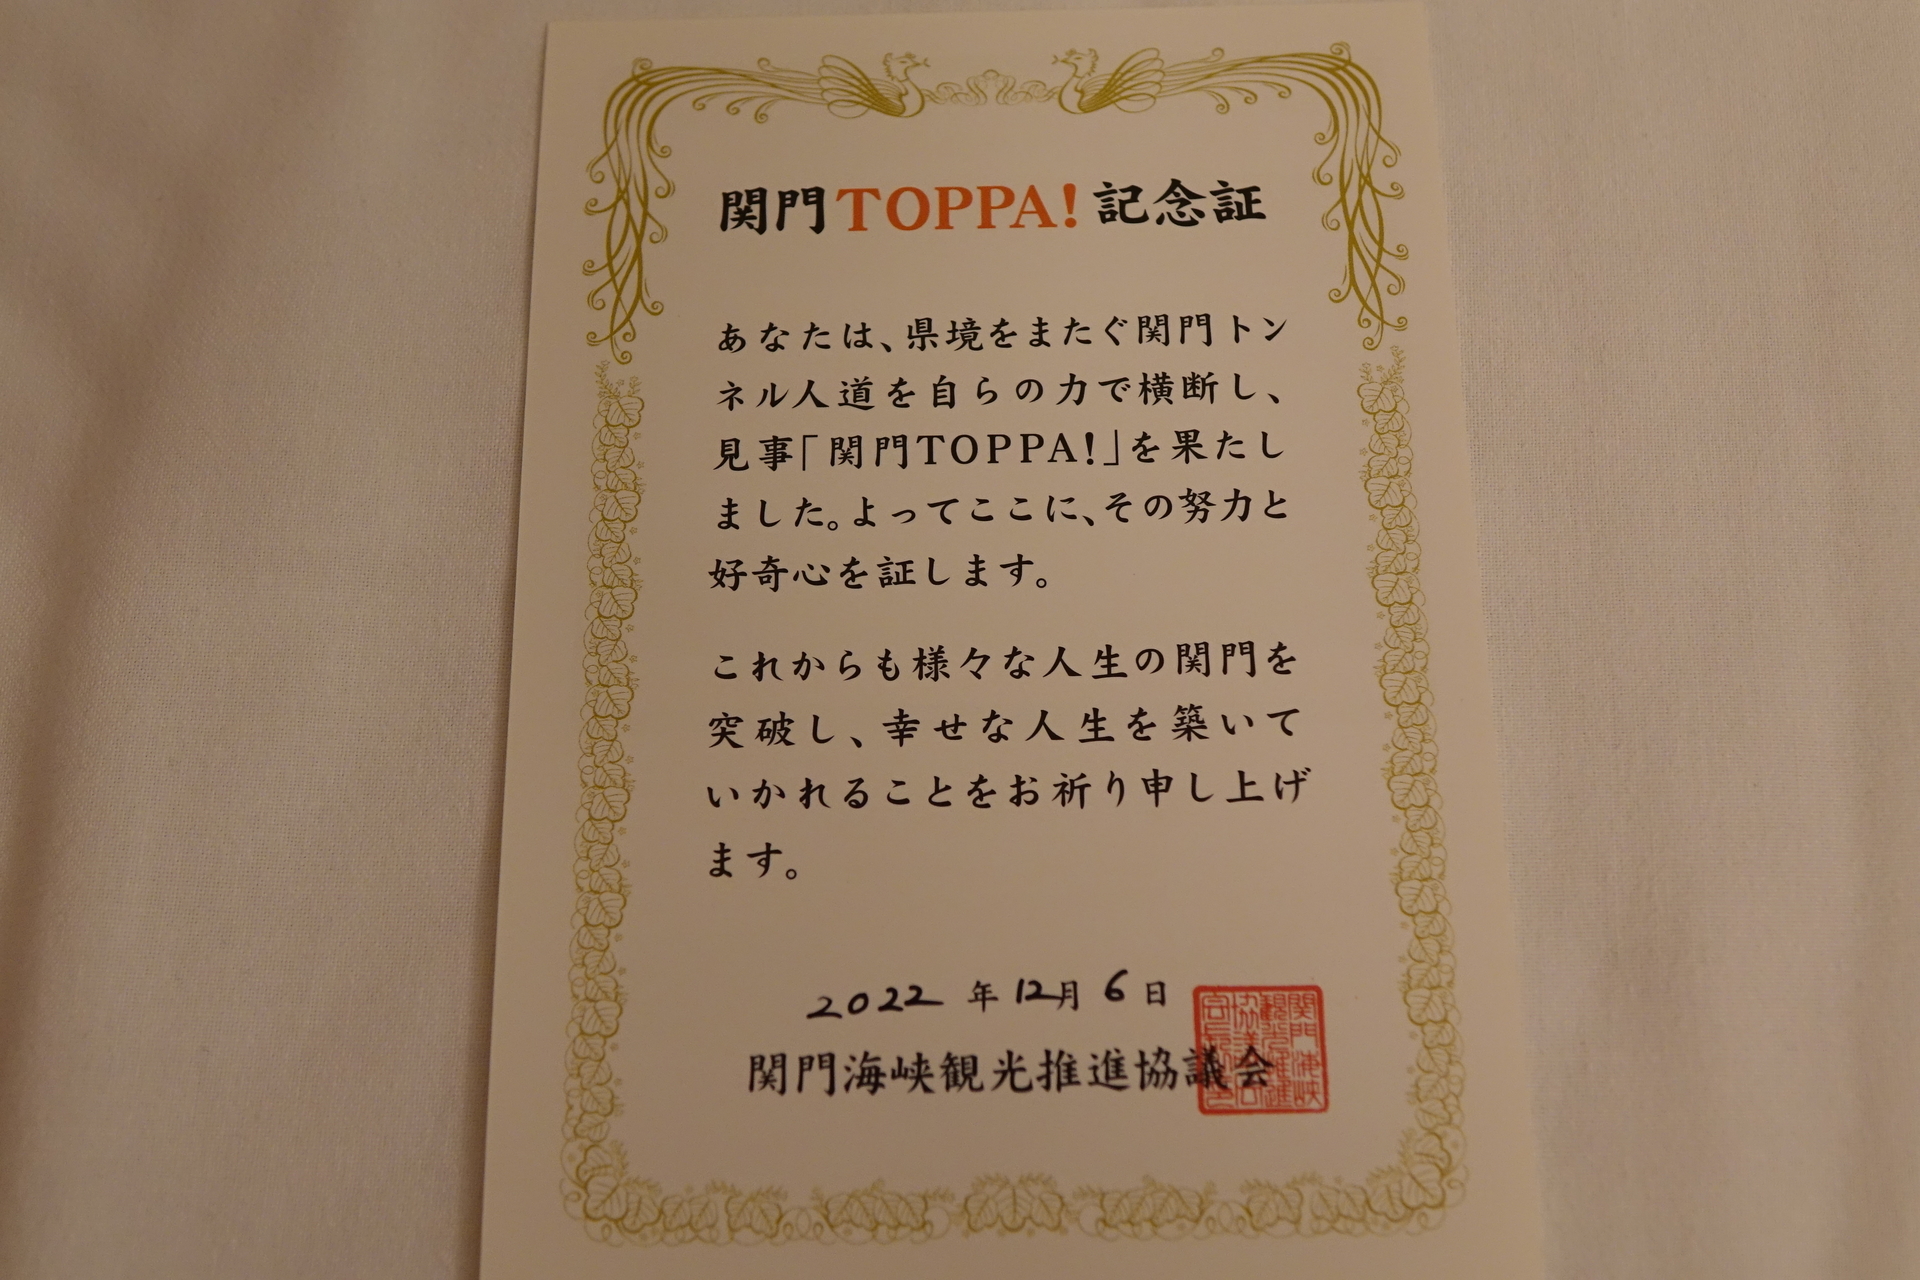 関門TOPPA!記念証
あなたは、県境をまたぐ関門トン
ネル人道を自らの力で横断し、
見事「関門TOPPA!」を果たし
ました。よってここに、その努力と
好奇心を証します。
これからも様々な人生の関門を
突破し、幸せな人生を築いて
いかれることをお祈り申し上げ
ます。
2022年12月6日
関門海峡観光推進協議会